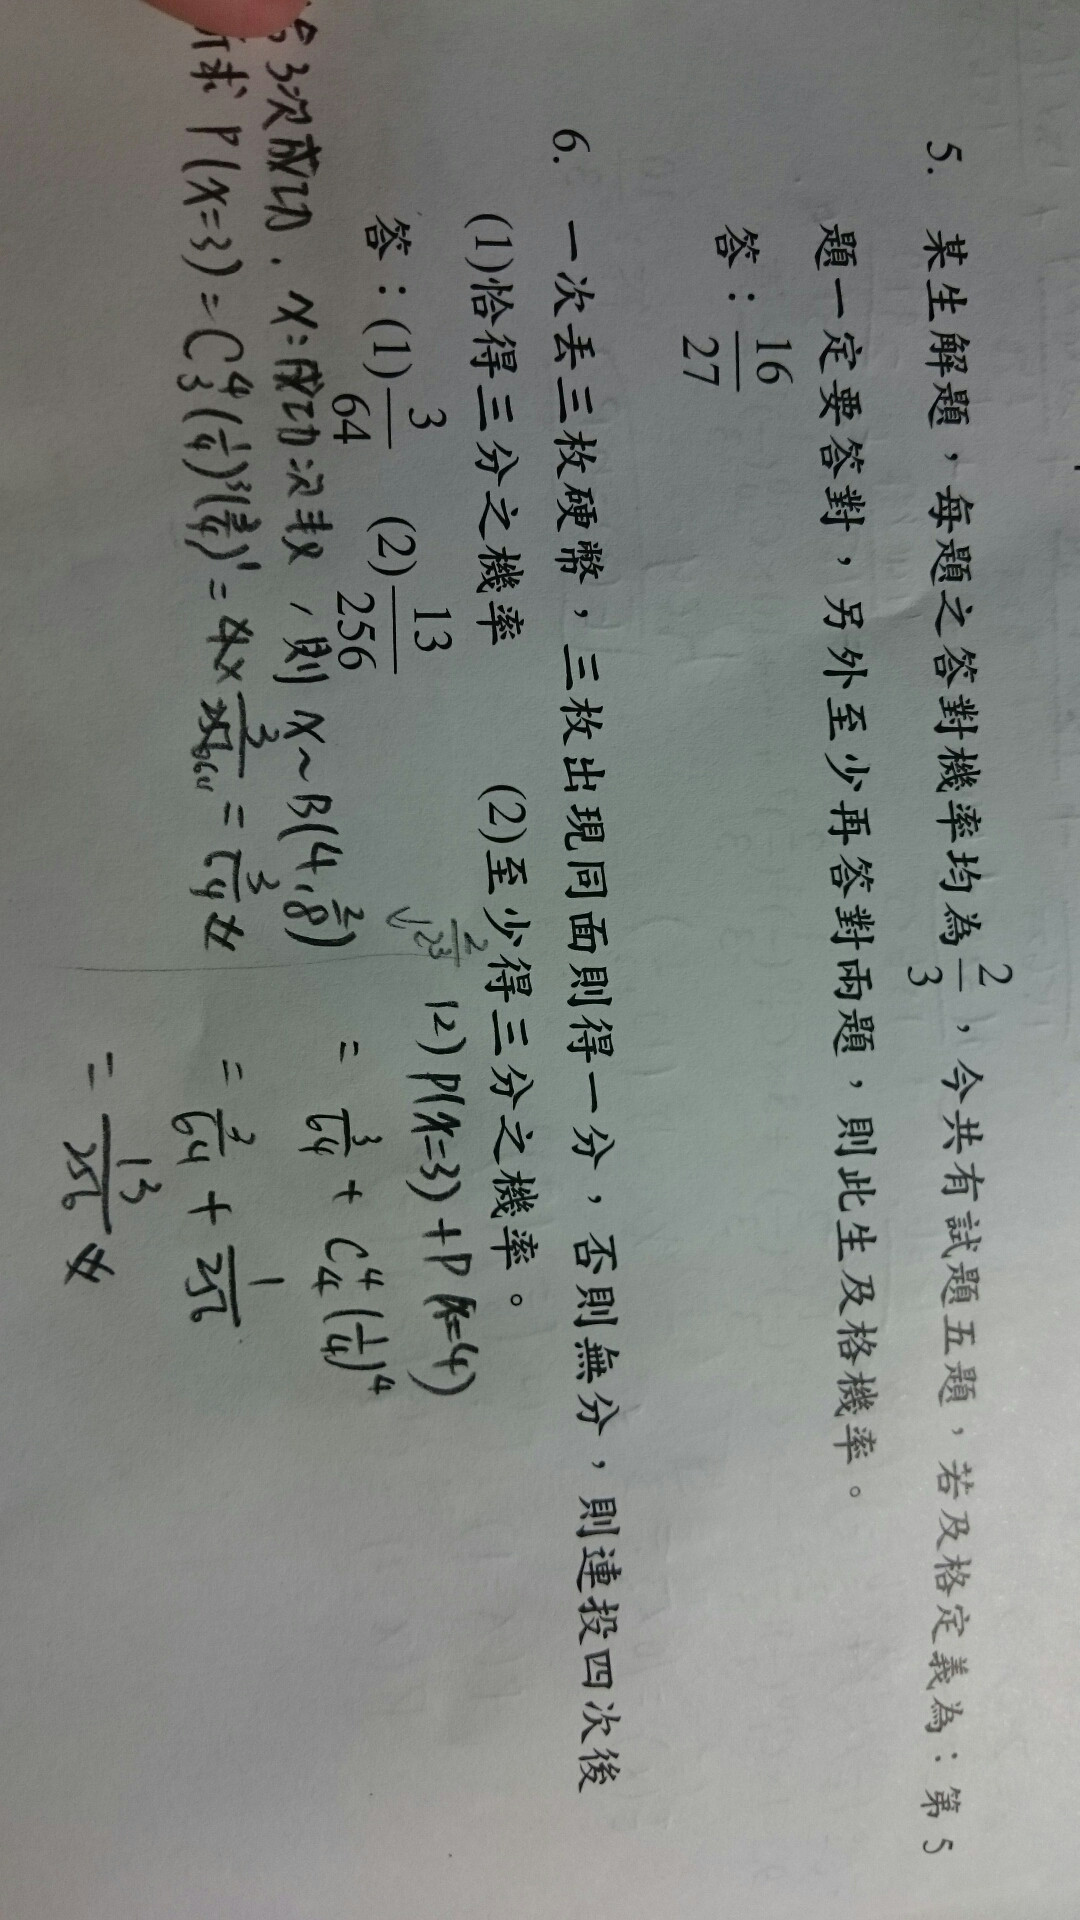 5. 某生解題，每題之答對機率均為 2/3，今共有試題五題，若及格定義為：第 5
題一定要答對，另外至少再答對兩題，則此生及格機率。
答：16/27
6. 一次丟三枚硬幣，三枚出現同面則得一分，否則無分，則連投四次後
(1)恰得三分之機率 (2)至少得三分之機率。
答：(1) 3/64 (2) 13/256
3次成功．X=成功次數，則 X~B(4, 2/8)
2/2³
求 P(X=3) = C⁴₃(1/4)³(3/4)¹ = 4× 3/256 64 = 3/64
(2) P(X=3)+P(X=4)
= 3/64 + C⁴₄(1/4)⁴
= 3/64 + 1/256
= 13/256